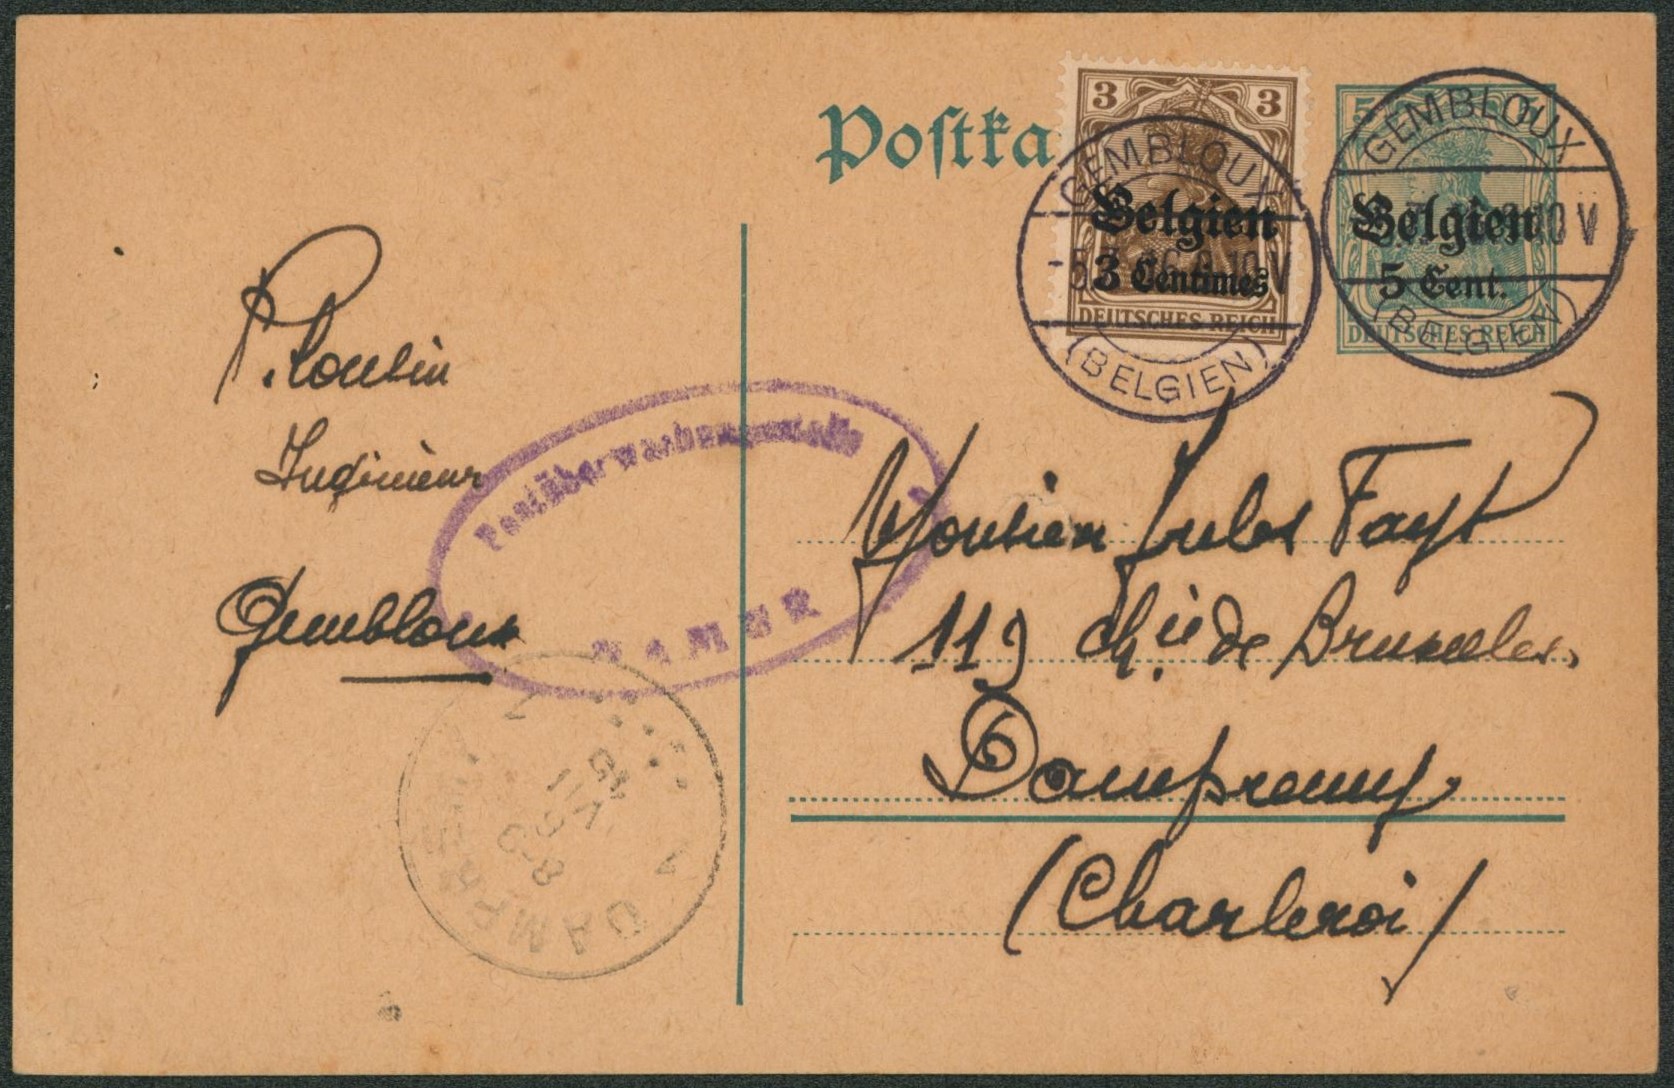 Postka
3 3
Belgien
3 Centimes
DEUTSCHES REICH
GEMBLOUX
(BELGIEN)
5
Belgien
5 Cent.
DEUTSCHES REICH
GEMBLOUX
10 V
(BELGIEN)
Ingénieur
Gembloux
Postüberwachungsstelle
NAMUR
Monsieur Jules Fayt
119 Chée de Bruxelles
Dampremy
(Charleroi)